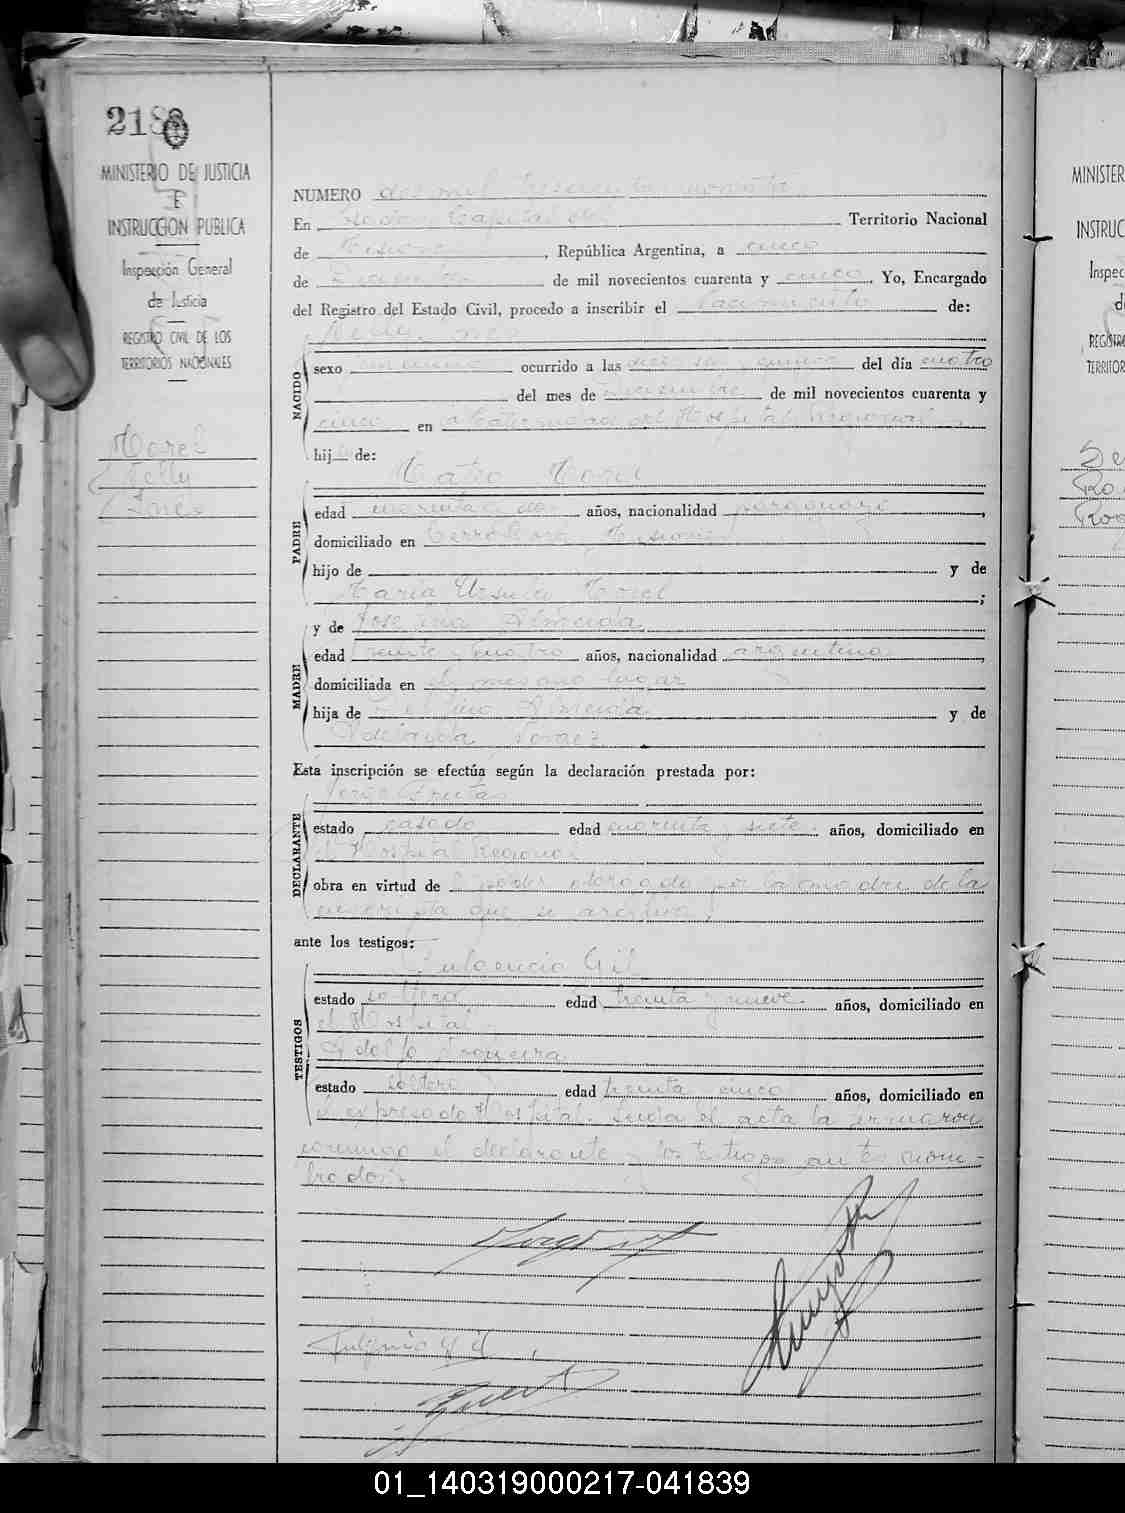 218
MINISTERIO DE JUSTICIA
E
INSTRUCCION PUBLICA
Inspección General
de Justicia
REGISTRO CIVIL DE LOS
TERRITORIOS NACIONALES
Morel
Nelly
Ines
NUMERO dos mil trescientos noventa
En Posadas Capital del Territorio Nacional
de Misiones, República Argentina, a cinco
de Diciembre de mil novecientos cuarenta y cinco. Yo, Encargado
del Registro del Estado Civil, procedo a inscribir el Nacimiento de:
Nelly Ines
NACIDO
sexo femenino ocurrido a las quince del día cuatro
del mes de Diciembre de mil novecientos cuarenta y
cinco en Maternidad del Hospital Regional
hija de:
Morel
PADRE
edad cuarenta y dos años, nacionalidad paraguayo,
domiciliado en Cerro Corá, Misiones
hijo de y de
Maria Ursula Morel;
y de Josefina Almeida
MADRE
edad treinta y cuatro años, nacionalidad argentina,
domiciliada en el mismo lugar
hija de Almeida y de
Adelaida
Esta inscripción se efectúa según la declaración prestada por:
Jorge
DECLARANTE
estado casado edad cuarenta y siete años, domiciliado en
el Hospital Regional
obra en virtud de el poder otorgado por la madre de la
inscripta que se archiva.
ante los testigos:
Fulgencio Gil
TESTIGOS
estado soltero edad treinta y nueve años, domiciliado en
el Hospital
Adolfo
estado soltero edad treinta cinco años, domiciliado en
el expresado Hospital. Leida el acta la firmaron
conmigo el declarante y los testigos antes nom-
brados
Fulgencio Gil
MINISTER
INSTRUC
Inspec
d
REGISTR
TERRITOR
01_140319000217-041839